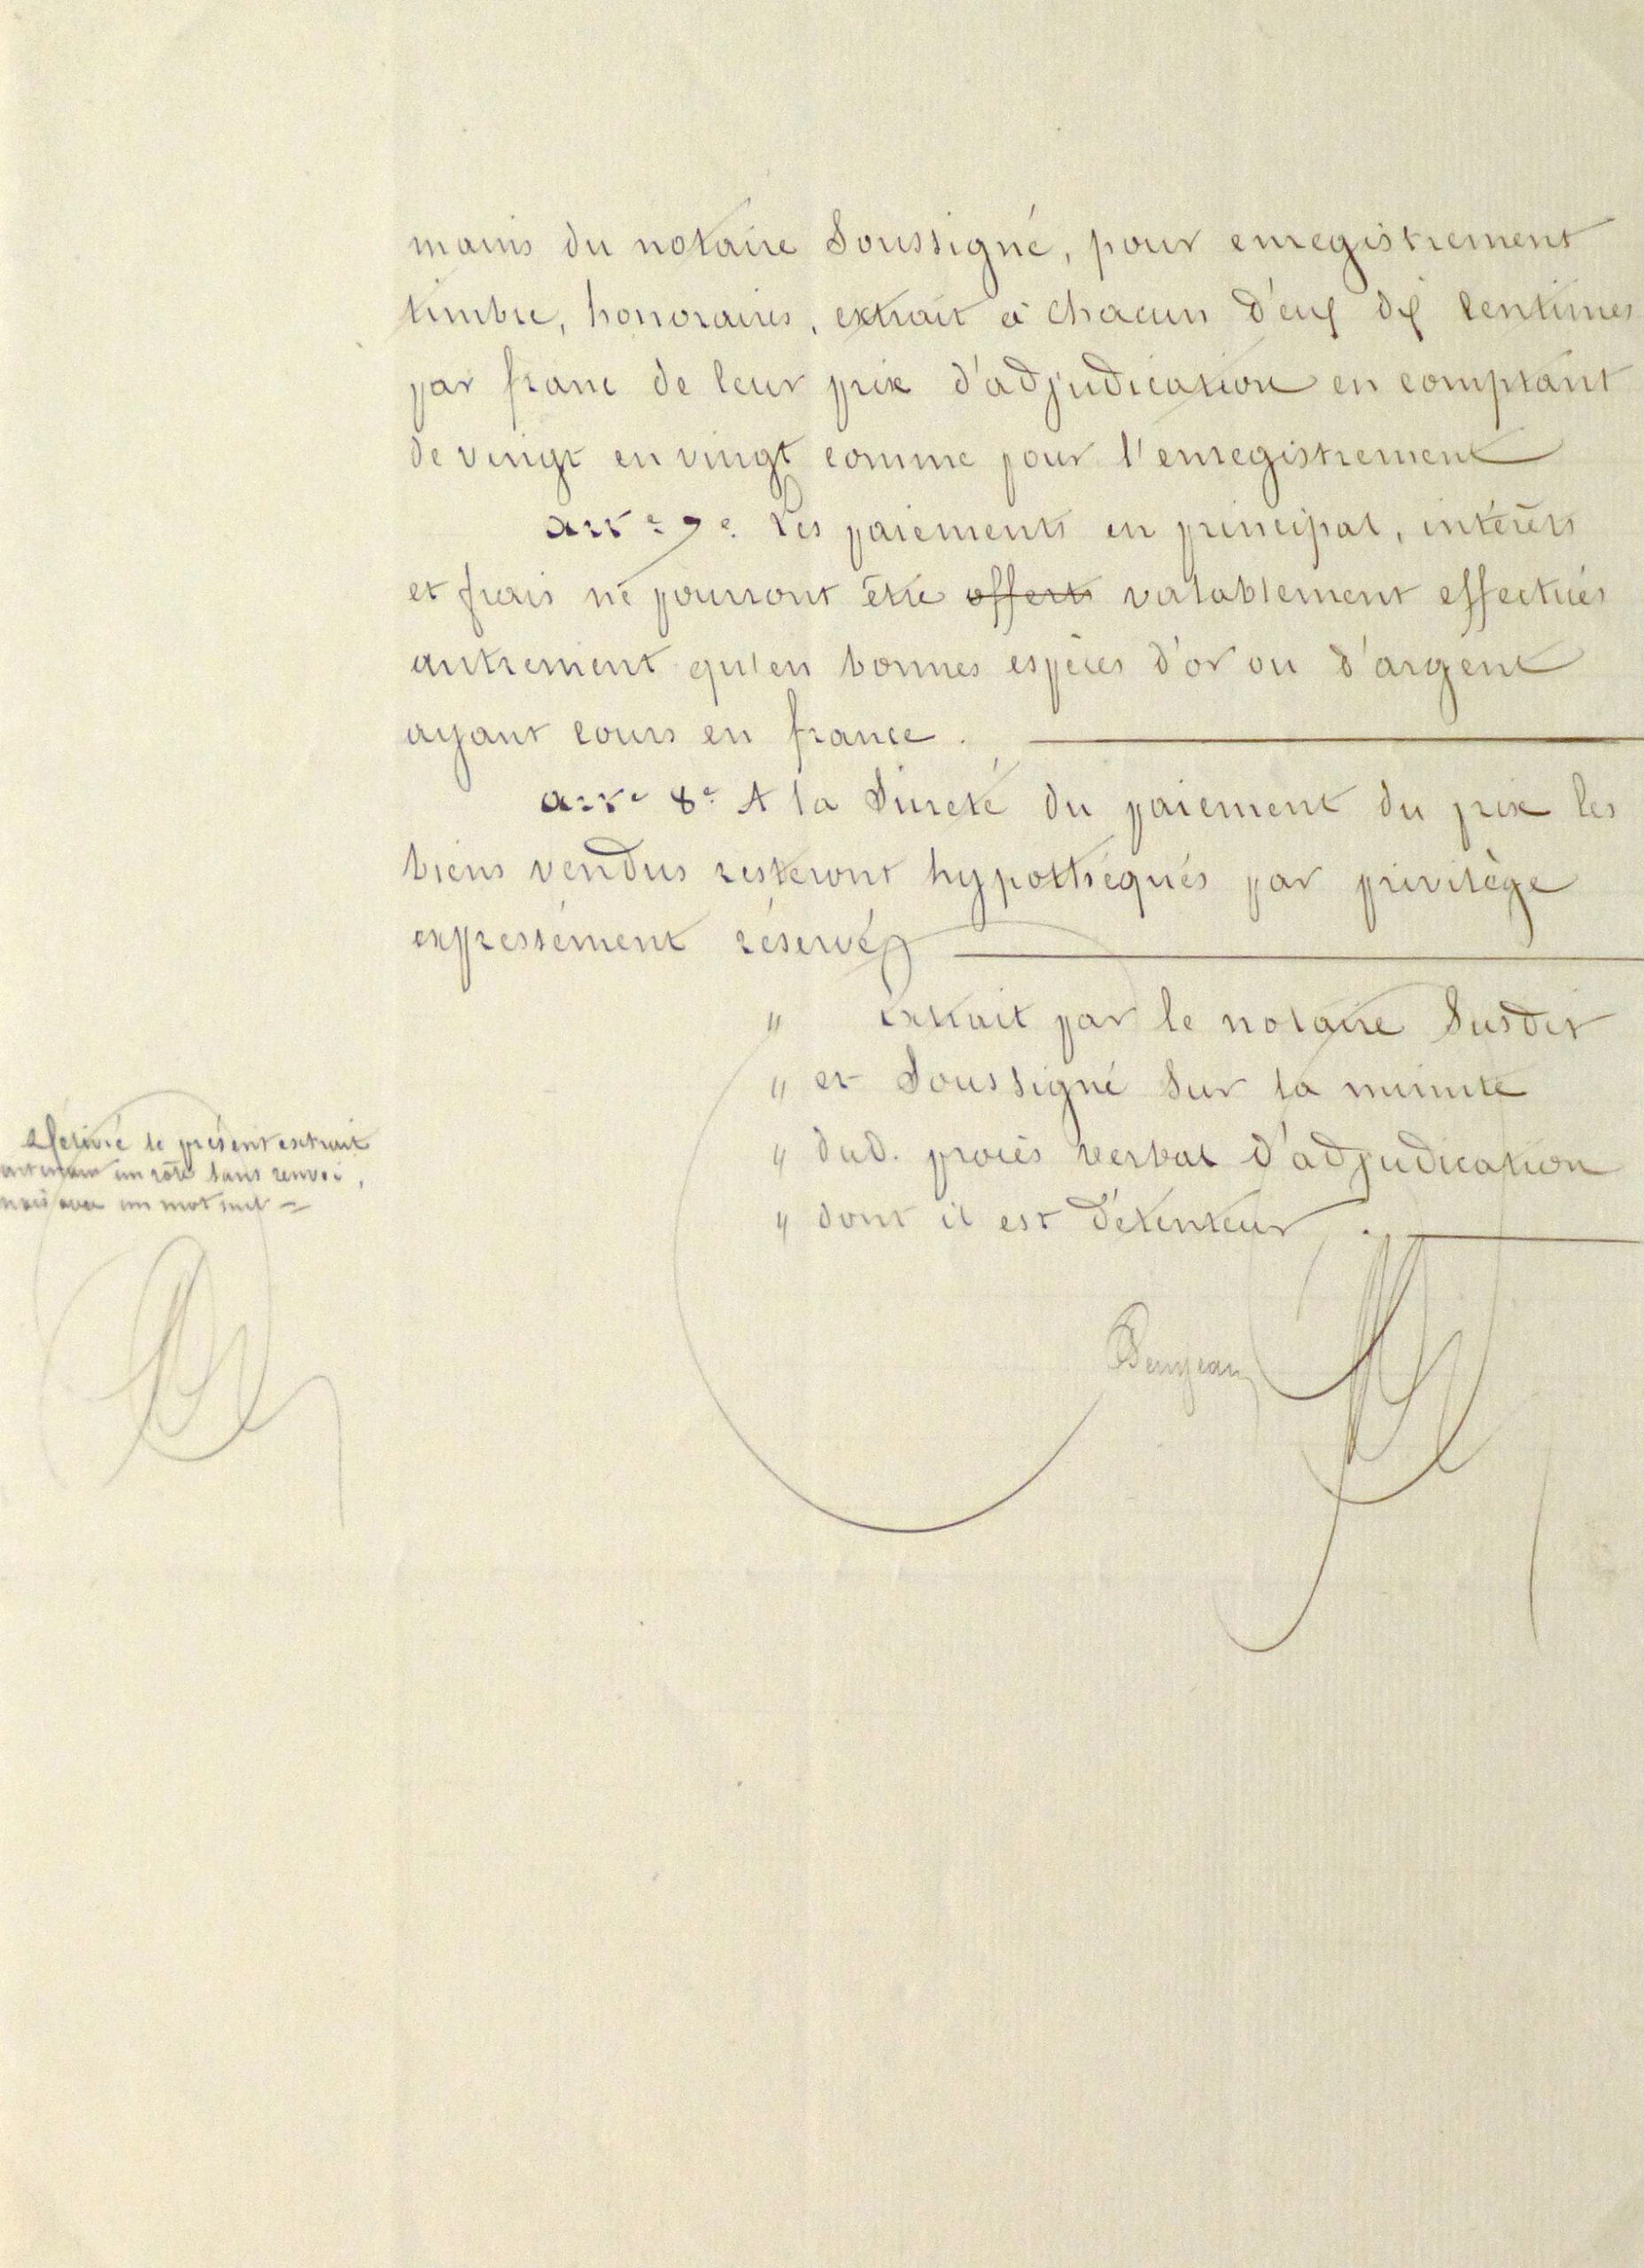 mains du notaire Soussigné, pour enregistrement
timbre, honoraires, extrait à chacun d'eux dix centimes
par franc de leur prix d'adjudication en comptant
de vingt en vingt comme pour l'enregistrement
arte 7e. Les paiements en principal, intérêts
et frais ne pourront être offerts valablement effectués
autrement qu'en bonnes espèces d'or ou d'argent
ayant cours en france.
arte 8e A la Sureté du paiement du prix les
biens vendus resteront hypothéqués par privilège
expressément réservé
" Extrait par le notaire Susdit
" et Soussigné Sur la minute
" dud. procès verbal d'adjudication
" dont il est détenteur.
Délivré le présent extrait
contenant un rôle sans renvoi,
mais avec un mot nul =